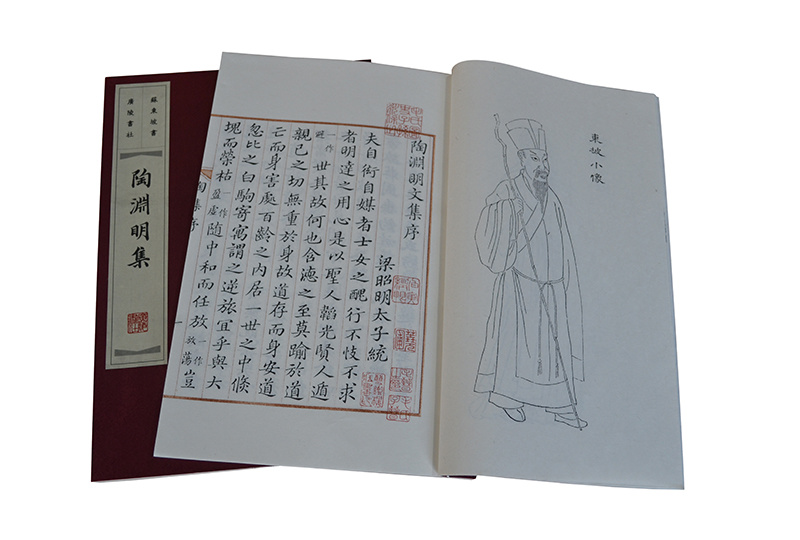 蘇東坡書
廣陵書社
陶淵明集
東坡小像
陶淵明文集序
梁昭明太子統
夫自衒自媒者士女之醜行不忮不求
者明達之用心是以聖人韜光賢人遁
一作避世其故何也含德之至莫踰於道
親己之切無重於身故道存而身安道
亡而身害處百齡之內居一世之中倏
忽比之白駒寄寓謂之逆旅宜乎與大
塊而榮枯一作盈虛隨中和而任放一作放蕩豈
陶集序
一